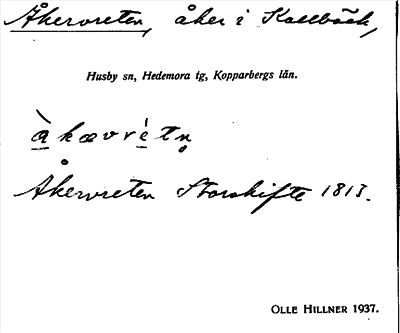 Åkervreten, åker i Kallbäck,
Husby sn, Hedemora tg, Kopparbergs län.
à kævrètn̥
Åkervreten Storskifte 1813.
OLLE HILLNER 1937.